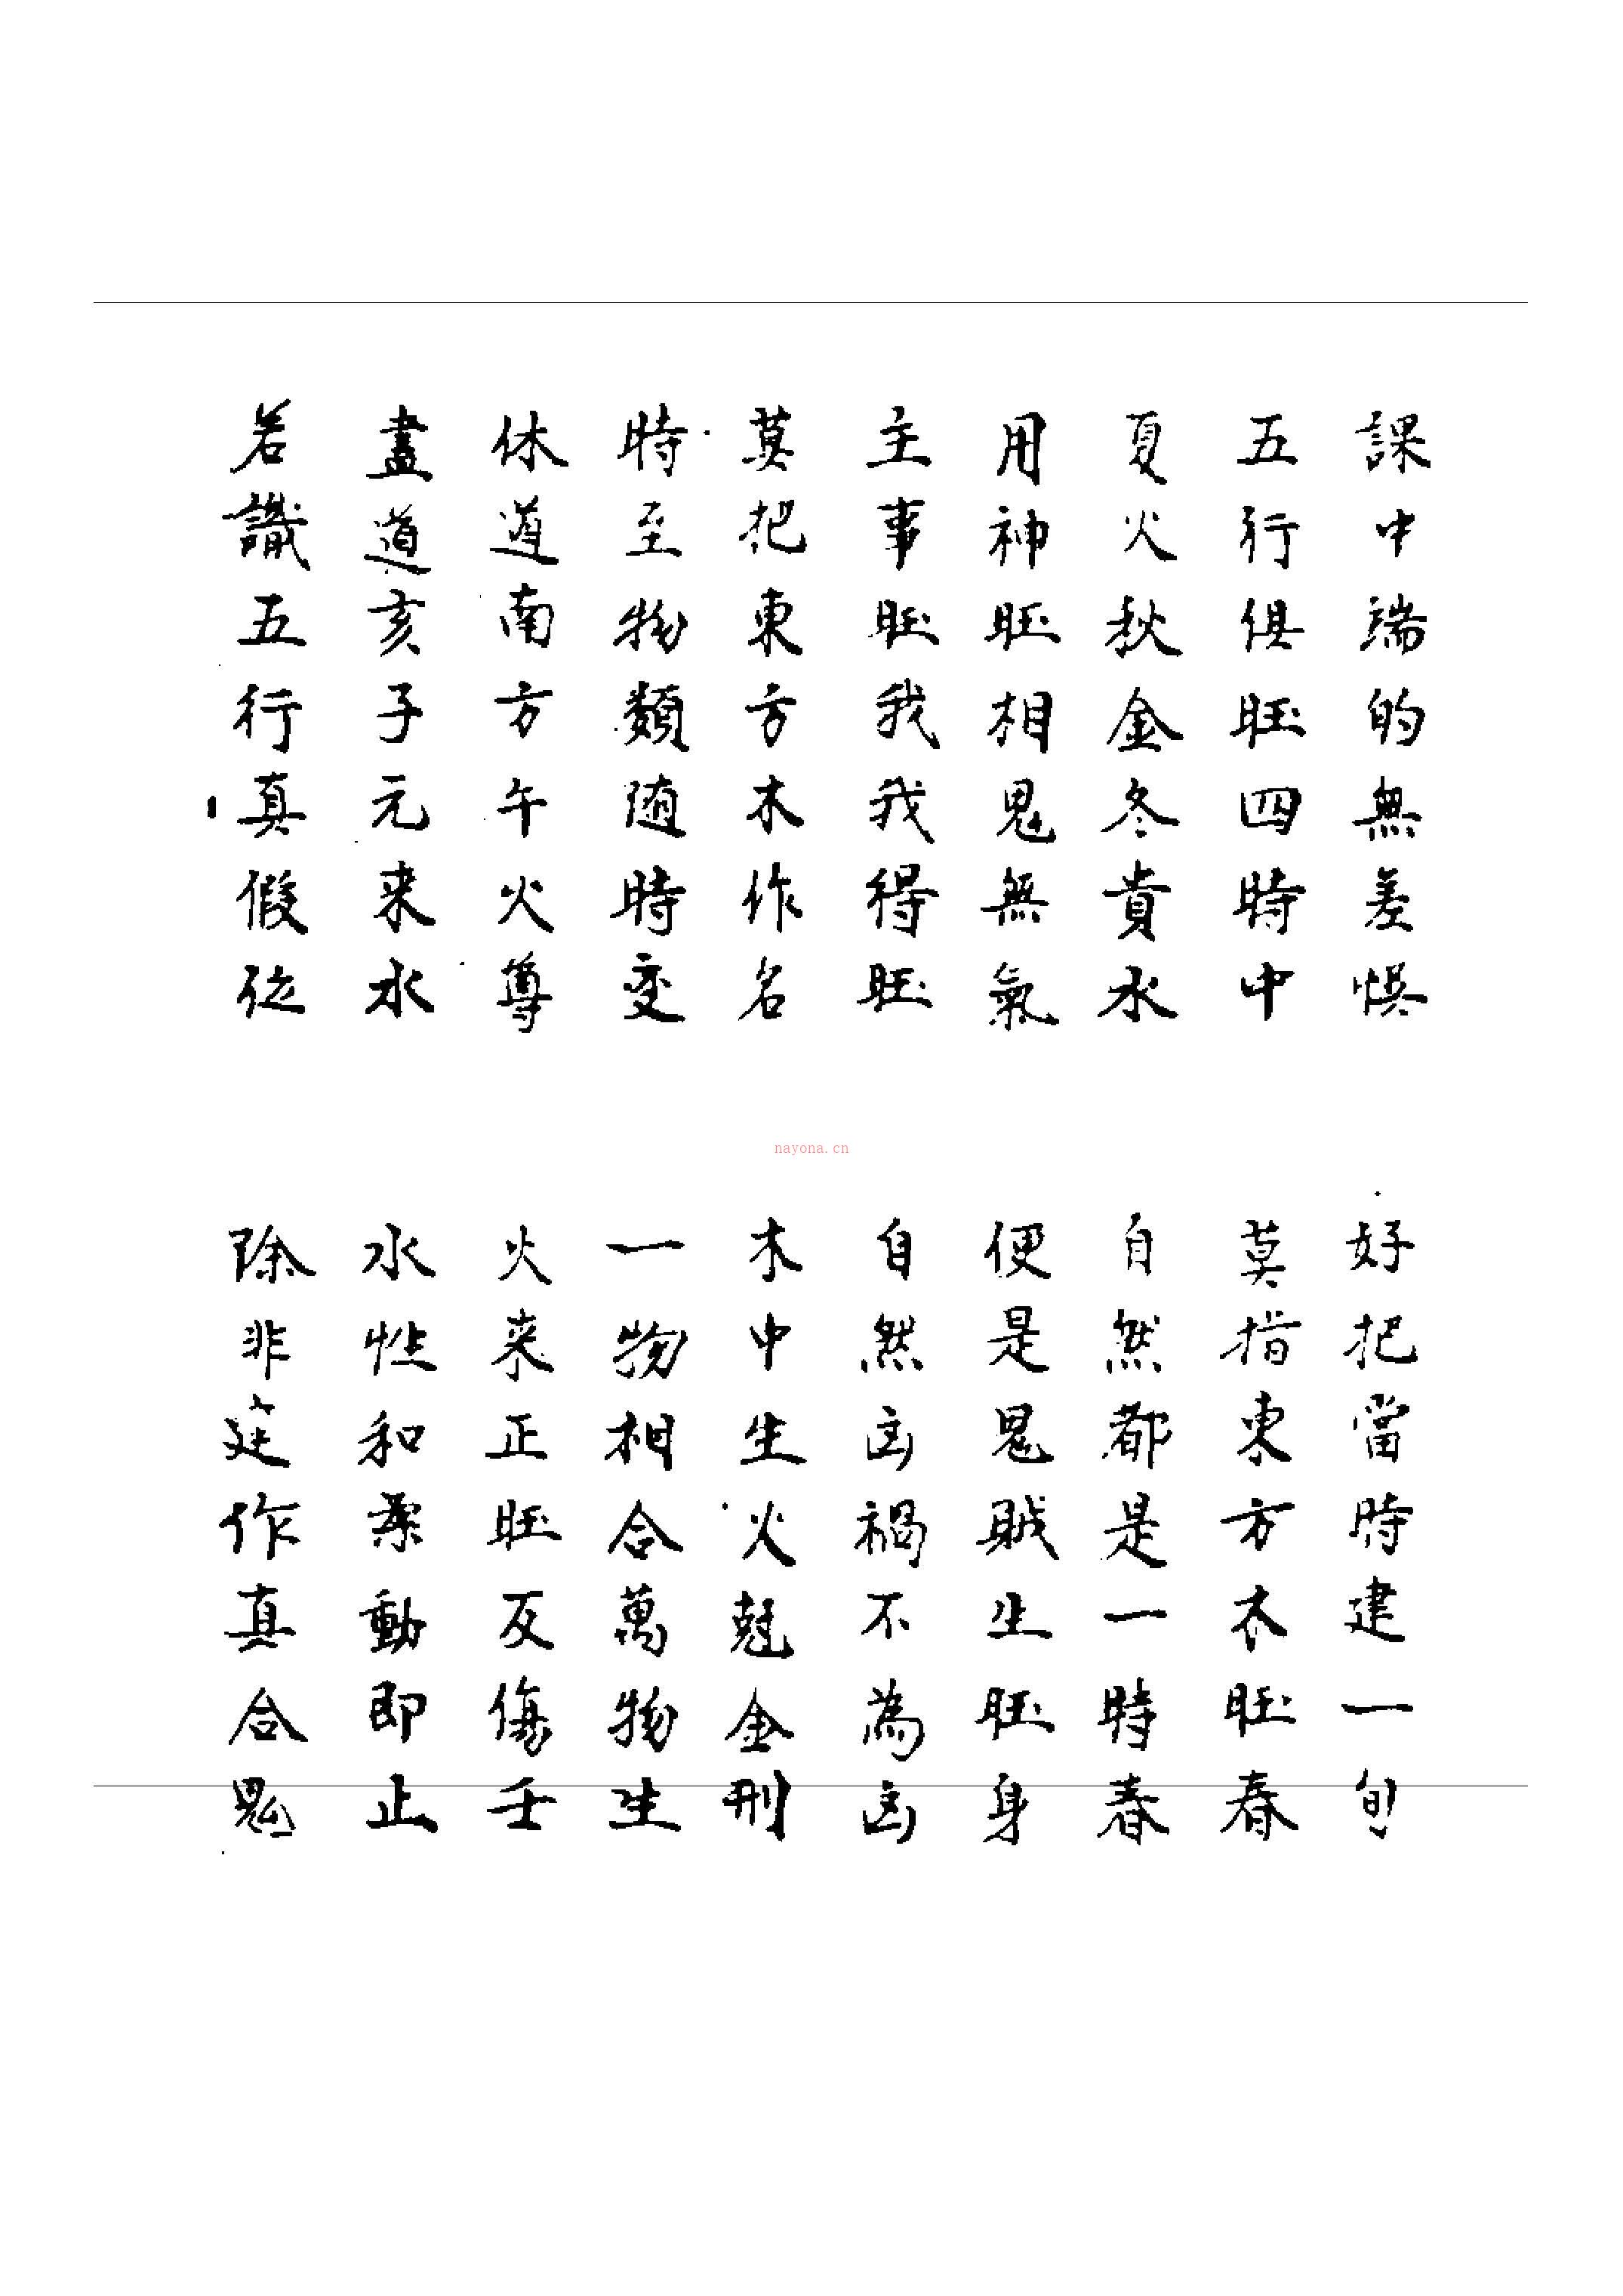 課中端的無差悮
好把當時建一旬
五行俱旺四時中
莫指東方木旺春
夏火秋金冬貴水
自然都是一時春
用神旺相鬼無氣
便是鬼賊生旺身
主事旺我我得旺
自然凶禍不為凶
莫把東方木作名
木中生火尅金刑
時至物類随時变
一物相合萬物生
休道南方午火尊
火来正旺反傷壬
盡道亥子元来水
水性和柔動即止
若識五行真假従
除非莚作真合鬼
nayona.cn